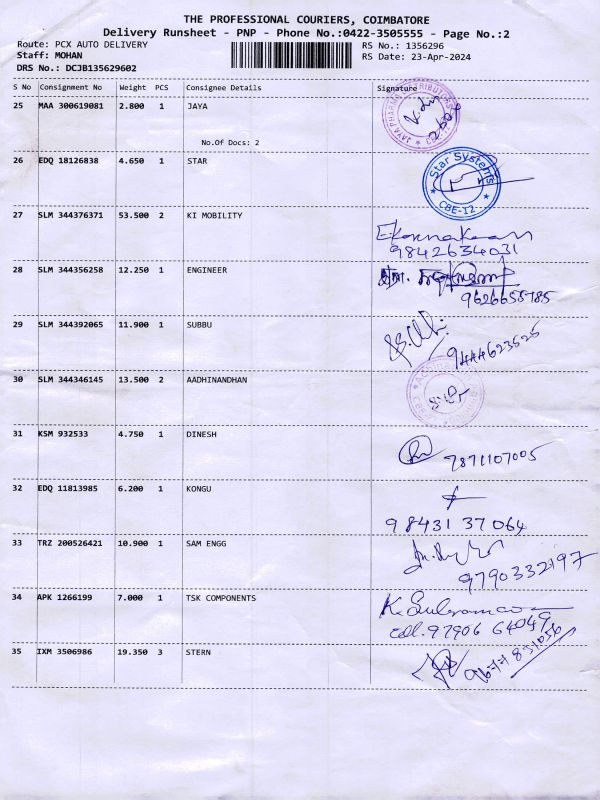 THE PROFESSIONAL COURIERS, COIMBATORE
Delivery Runsheet - PNP - Phone No.:0422-3505555 - Page No.:2
Route: PCX AUTO DELIVERY RS No.: 1356296
Staff: MOHAN RS Date: 23-Apr-2024
DRS No.: DCJB135629602
S No Consignment No Weight PCS Consignee Details Signature
25 MAA 300619081 2.800 1 JAYA
No.Of Docs: 2
26 EDQ 18126838 4.650 1 STAR
Star Systems
CBE-12
27 SLM 344376371 53.500 2 KI MOBILITY
9842634031
28 SLM 344356258 12.250 1 ENGINEER
29 SLM 344392065 11.900 1 SUBBU
9444623525
30 SLM 344346145 13.500 2 AADHINANDHAN
31 KSM 932533 4.750 1 DINESH
7871107005
32 EDQ 11813985 6.200 1 KONGU
9843137064
33 TRZ 200526421 10.900 1 SAM ENGG
9790332197
34 APK 1266199 7.000 1 TSK COMPONENTS
Cell.97906 64049
35 IXM 3506986 19.350 3 STERN